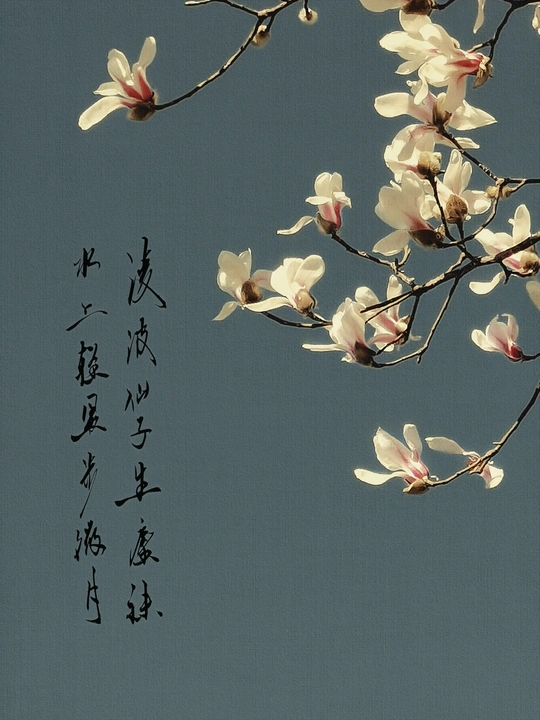 凌波仙子生塵袜
水上輕盈步微月